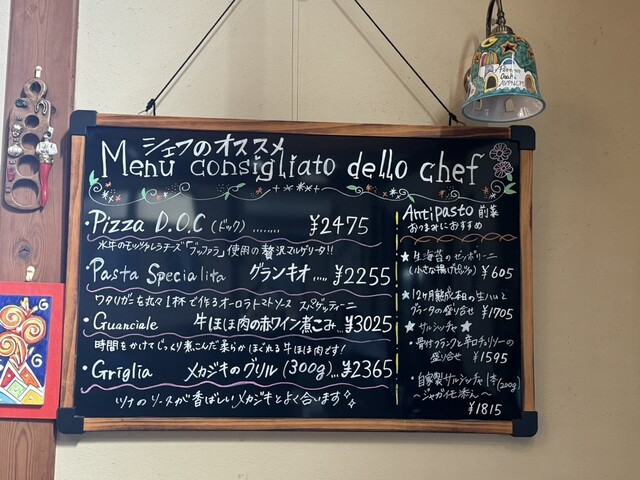 シェフのオススメ
Menu consigliato dello chef
・Pizza D.O.C (ドック) ........ ¥2475
水牛のモッツァレラチーズ「ブッファラ」使用の贅沢マルゲリータ!!
・Pasta Specialita グランキオ..... ¥2255
ワタリガニを丸々1杯で作るオーロラトマトソース スパゲッティーニ
・Guanciale 牛ほほ肉の赤ワイン煮こみ...¥3025
時間をかけてじっくり煮こんだ柔らかほぐれる牛ほほ肉です!
・Griglia メカジキのグリル (300g)...¥2365
ツナのソースが香ばしいメカジキとよく合います
Antipasto 前菜
おつまみにおすすめ
★生海苔のゼッポリーニ
(小さな揚げピッツァ) ¥605
★12ヶ月熟成 和の生ハムと
ブラータの盛り合せ ¥1705
★サルシッチャ★
・骨付フランクと辛口チョリソーの
盛り合せ ¥1595
・自家製サルシッチャ 1本(200g)
～ジャガイモ添え～
¥1815